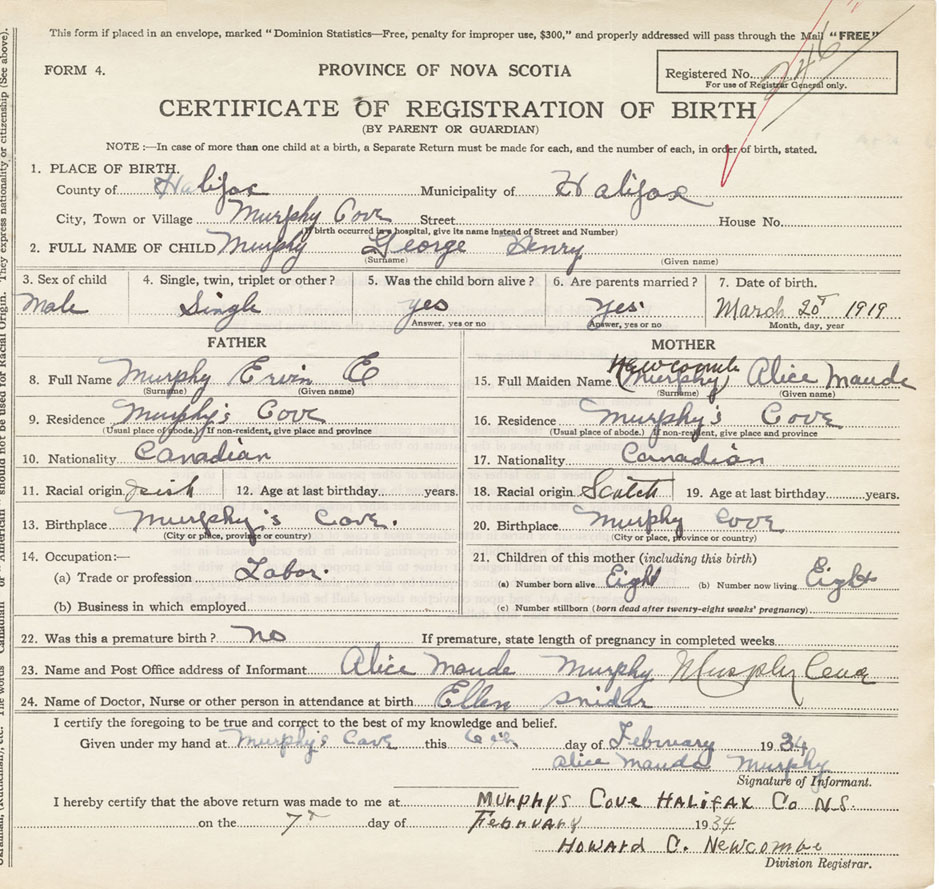 This form if placed in an envelope, marked "Dominion Statistics—Free, penalty for improper use, $300," and properly addressed will pass through the Mail "FREE"
FORM 4.
PROVINCE OF NOVA SCOTIA
Registered No. 246
For use of Registrar General only.
CERTIFICATE OF REGISTRATION OF BIRTH
(BY PARENT OR GUARDIAN)
NOTE :—In case of more than one child at a birth, a Separate Return must be made for each, and the number of each, in order of birth, stated.
1. PLACE OF BIRTH.
County of Halifax Municipality of Halifax
City, Town or Village Murphy Cove Street House No.
(If birth occurred in a hospital, give its name instead of Street and Number)
2. FULL NAME OF CHILD Murphy George Henry
(Surname) (Given name)
3. Sex of child 4. Single, twin, triplet or other? 5. Was the child born alive? 6. Are parents married? 7. Date of birth.
Male Single yes yes March 20 1919
Answer, yes or no Answer, yes or no Month, day, year
FATHER MOTHER
Newcomb
8. Full Name Murphy Ervin E 15. Full Maiden Name (Murphy) Alice Maude
(Surname) (Given name) (Surname) (Given name)
9. Residence Murphy's Cove 16. Residence Murphy's Cove
(Usual place of abode.) If non-resident, give place and province (Usual place of abode.) If non-resident, give place and province
10. Nationality Canadian 17. Nationality Canadian
11. Racial origin Irish 12. Age at last birthday years. 18. Racial origin Scotch 19. Age at last birthday years.
13. Birthplace Murphy's Cove. 20. Birthplace Murphy Cove
(City or place, province or country) (City or place, province or country)
14. Occupation:— 21. Children of this mother (including this birth)
(a) Trade or profession Labor. (a) Number born alive Eight (b) Number now living Eight
(b) Business in which employed (c) Number stillborn (born dead after twenty-eight weeks' pregnancy)
22. Was this a premature birth? no If premature, state length of pregnancy in completed weeks
23. Name and Post Office address of Informant Alice Maude Murphy Murphy Cove
24. Name of Doctor, Nurse or other person in attendance at birth Ellen Snider
I certify the foregoing to be true and correct to the best of my knowledge and belief.
Given under my hand at Murphy's Cove this day of February 1934
Alice Maude Murphy
Signature of Informant.
I hereby certify that the above return was made to me at Murphys Cove Halifax Co N.S.
on the 7th day of February 1934.
Howard C. Newcombe
Division Registrar.